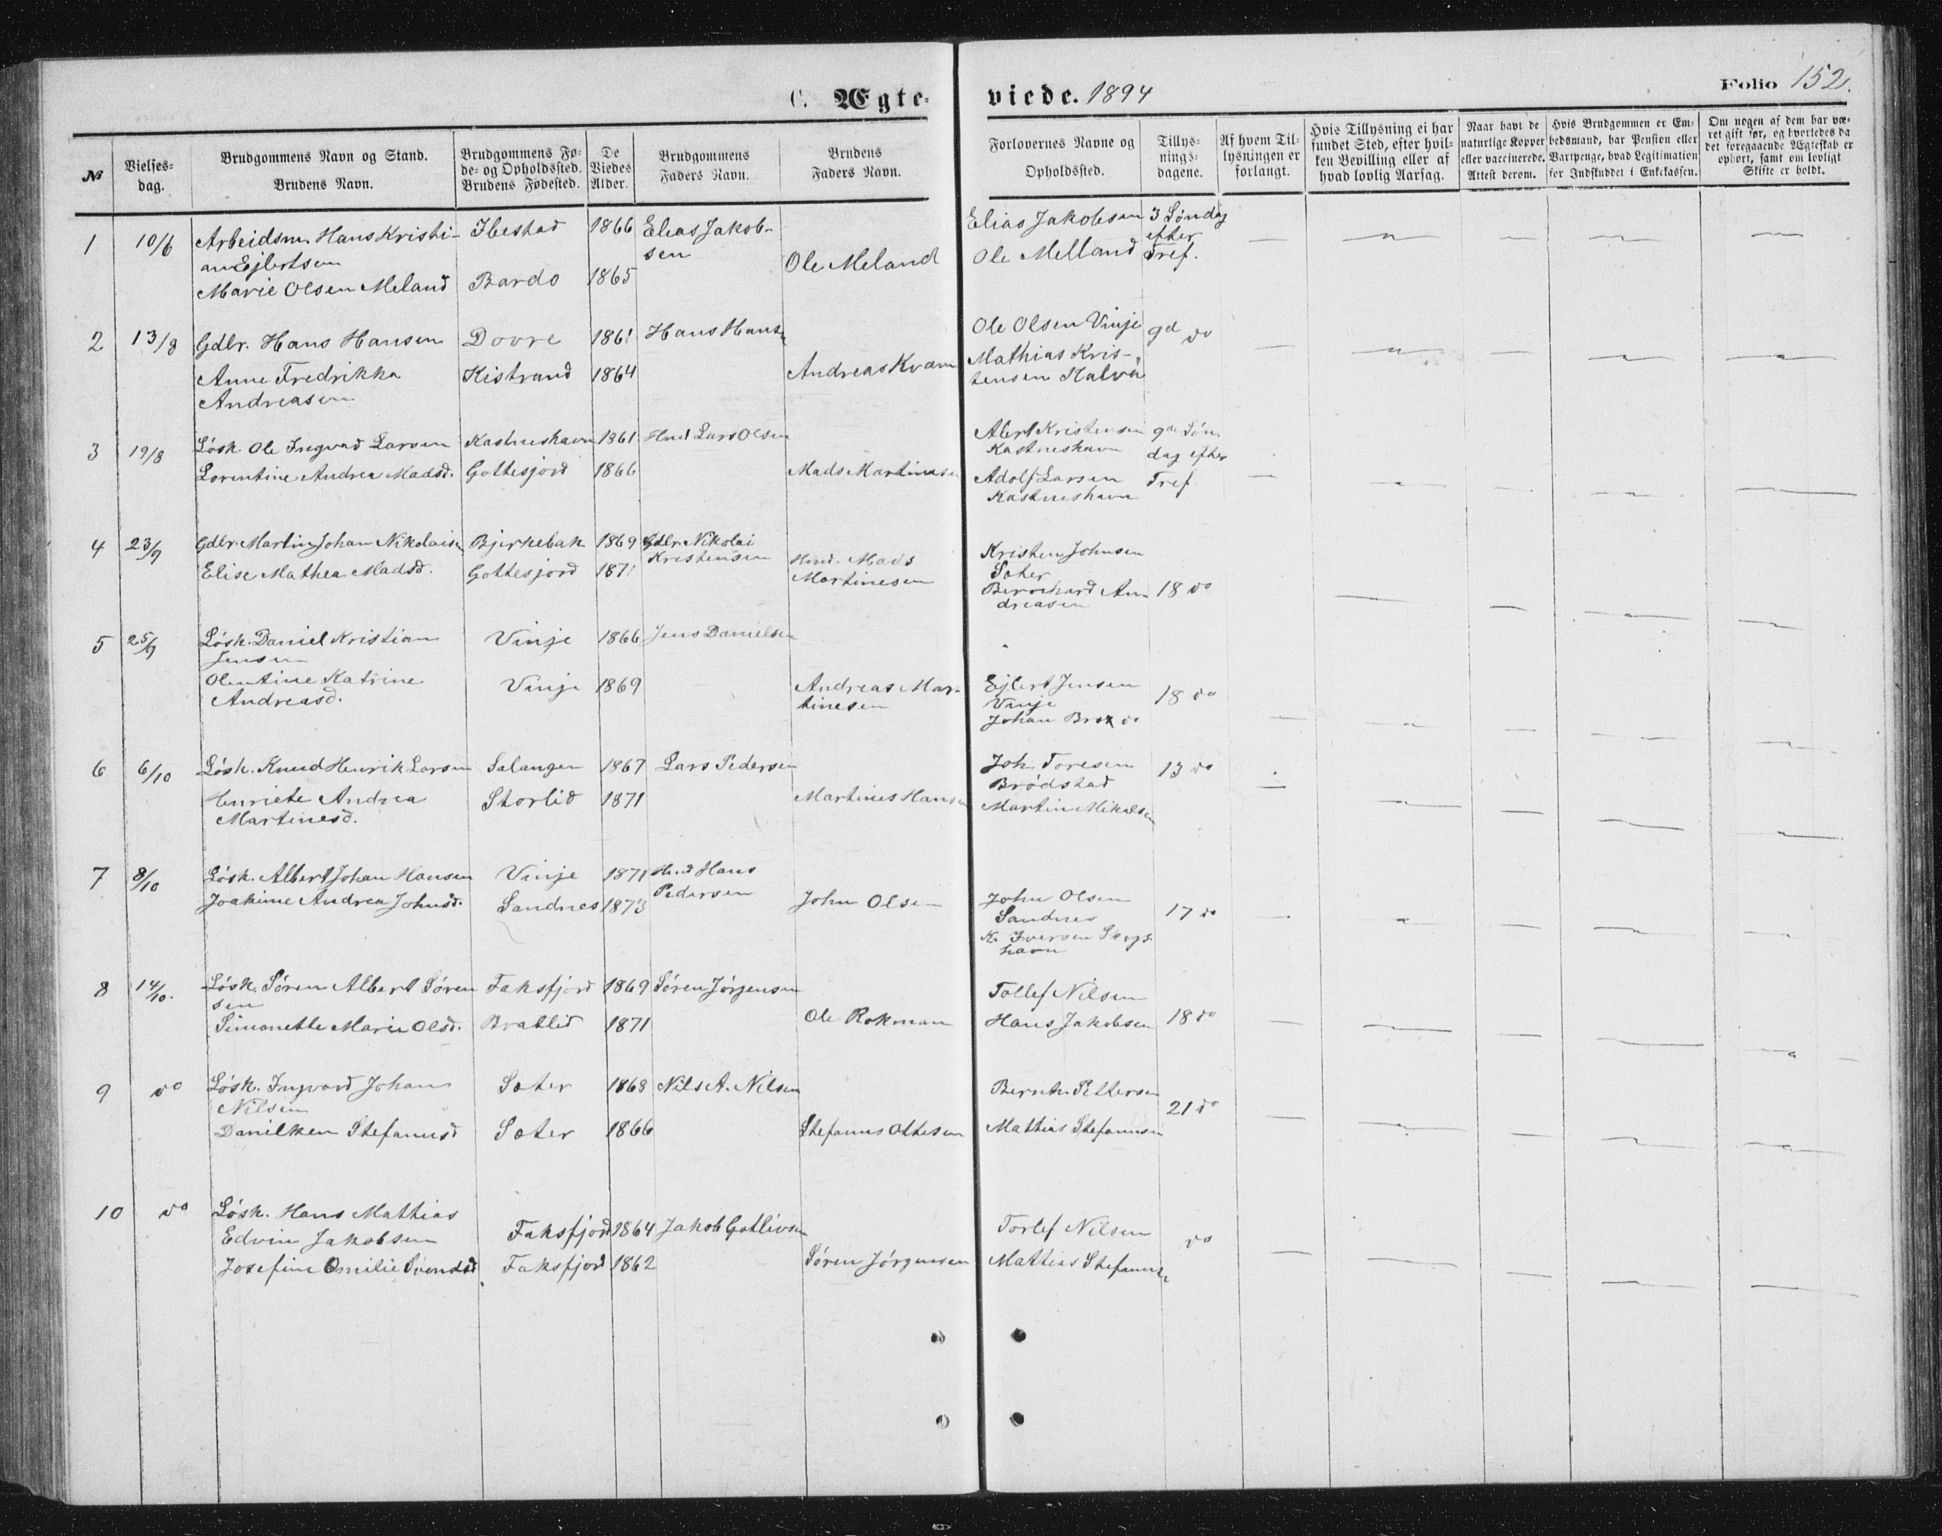 C. Ægte-
viede. 1894
Folio 152.
№
Vielses-
dag.
Brudgommens Navn og Stand.
Brudens Navn.
Brudgommens Fø-
de- og Opholdssted.
Brudens Fødested.
De
Viedes
Alder.
Brudgommens
Faders Navn.
Brudens
Faders Navn.
Forlovernes Navne og
Opholdssted.
Tillys-
nings-
dagene.
Af hvem Til-
lysningen er
forlangt.
Hvis Tillysning ei har
fundet Sted, efter hvil-
ken Bevilling eller af
hvad lovlig Aarsag.
Naar havt de
naturlige Kopper
eller vaccinerede.
Attest derom.
Hvis Brudgommen er Em-
bedsmand, har Pension eller
Vartpenge, hvad Legitimation
for Indskuddet i Enkekassen.
Om nogen af dem har væ-
ret gift før, og hvorledes da
det foregaaende Ægteskab er
ophørt, samt om lovligt
Skifte er holdt.
1 10/6 Arbeidsm. Hans Kristi- Ibestad 1866 Elias Jakob- Elias Jakobsen 3 Søndag
an Ejlertsen sen Ole Meland Ole Melland efter
Marie Olsen Meland Bardo 1865 Tref.
2 13/8 Gdbr. Hans Hansen Dovre 1861 Hans Hansen Ole Olsen Vinje 9d do
Anne Fredrikka Kistrand 1864 Andreas Kvam Mathias Kris-
Andreasen tensen Kalvå
3 19/8 Løsk. Ole Ingvad Larsen Kastneshavn 1861 Hmd Lars Olsen Albert Kristensen 9de Søn
Kastneshavn dag efter
Lorentine Andrea Madsd. Gottesjord 1866 Mads Martinesen Adolf Larsen Tref.
Kastneshavn
4 23/9 Gdbr. Martin Johan Nikolaisen Bjerkebak 1869 Gdbr. Nikolai Kristen Johnsen
Kristensen Sæter
Elise Mathea Madsd. Gottesjord 1871 Hmd. Mads Bernhard An 18 do
Martinesen dreasen
5 25/9 Løsk. Daniel Kristian Vinje 1866 Jens Danielsen
Jensen
Olentine Katrine Vinje 1869 Andreas Mar- Ejlert Jensen 18 do
Andreasd. tinesen Vinje
Johan Brox do
6 6/10 Løsk. Knud Henrik Larsen Salangen 1867 Lars Pedersen Joh. Toresen 13 do
Brødstad
Henriete Andrea Storlid 1871 Martines Hansen Martin Mikalsen
Martinesd.
7 8/10 Løsk. Albert Johan Hansen Vinje 1871 Hmd Hans
Pedersen
Joakime Andrea Johnsd. Sandnes 1873 John Olsen John Olsen 17 do
Sandnes
K. Iversen Skogs-
havn
8 14/10. Løsk. Søren Albert Søren Faksfjord 1869 Søren Jørgensen Tollef Nilsen
sen
Simonette Marie Olsd. Bratlid 1871 Ole Rokman Hans Jakobsen 18 do
9 do Løsk. Ingvard Johan Sæter 1868 Nils A. Nilsen Bernth. Pettersen
Nilsen 21 do
Danilken Stefanusd Sæter 1866 Stefanus Ottesen Mathias Stefanusen
10 do Løsk. Hans Mathias
Edvin Jakobsen Faksfjord 1864 Jakob Gotlivsen Torlef Nilsen do
Josefine Emilie Svendsd. Faksfjord 1862 Søren Jørgensen Mathias Stefanusen